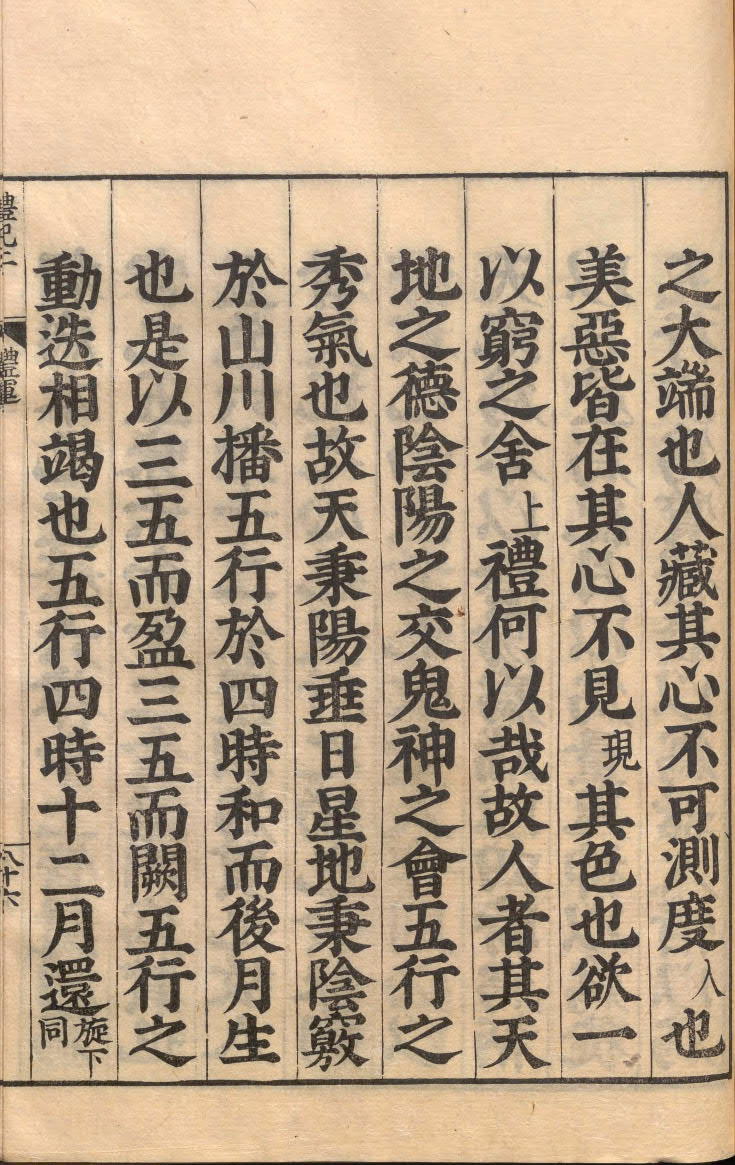 之大端也人藏其心不可測度入也
美惡皆在其心不見現其色也欲一
以窮之舍上禮何以哉故人者其天
地之德陰陽之交鬼神之會五行之
秀氣也故天秉陽垂日星地秉陰竅
於山川播五行於四時和而後月生
也是以三五而盈三五而闕五行之
動迭相竭也五行四時十二月還旋下同
禮記二 禮運 八十六